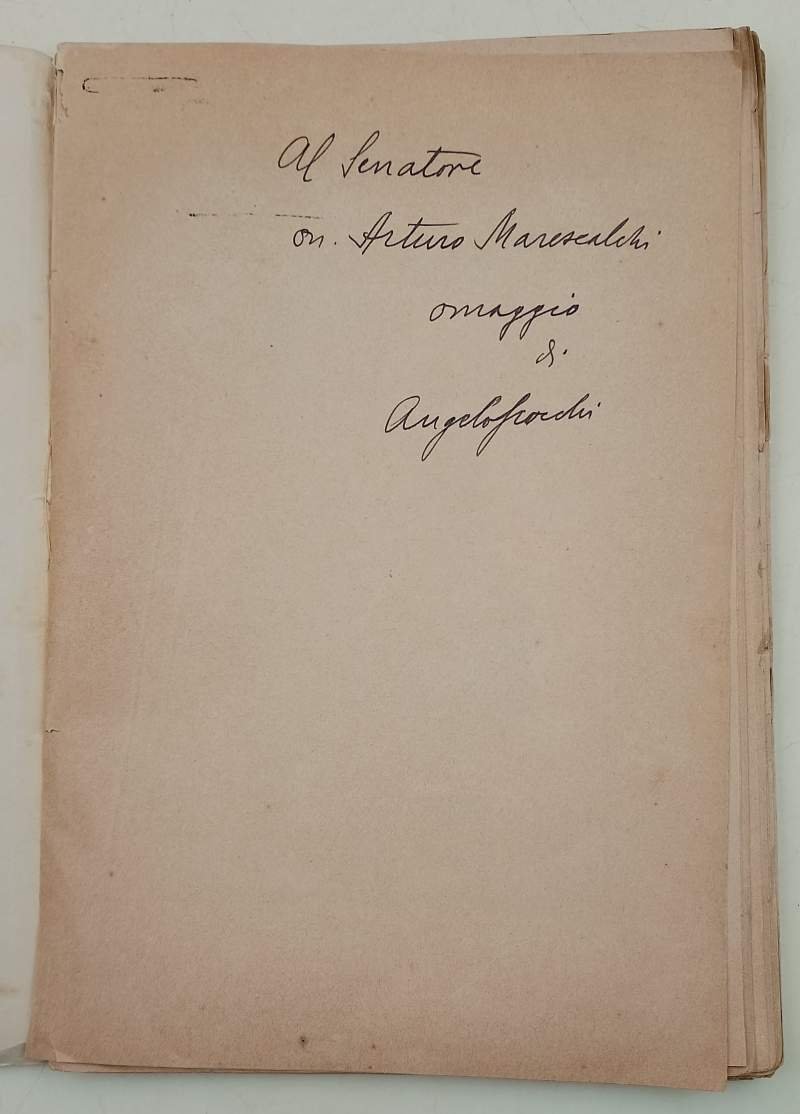 Al Senatore
on. Arturo Marescalchi
omaggio
di
Angelo Scocchi